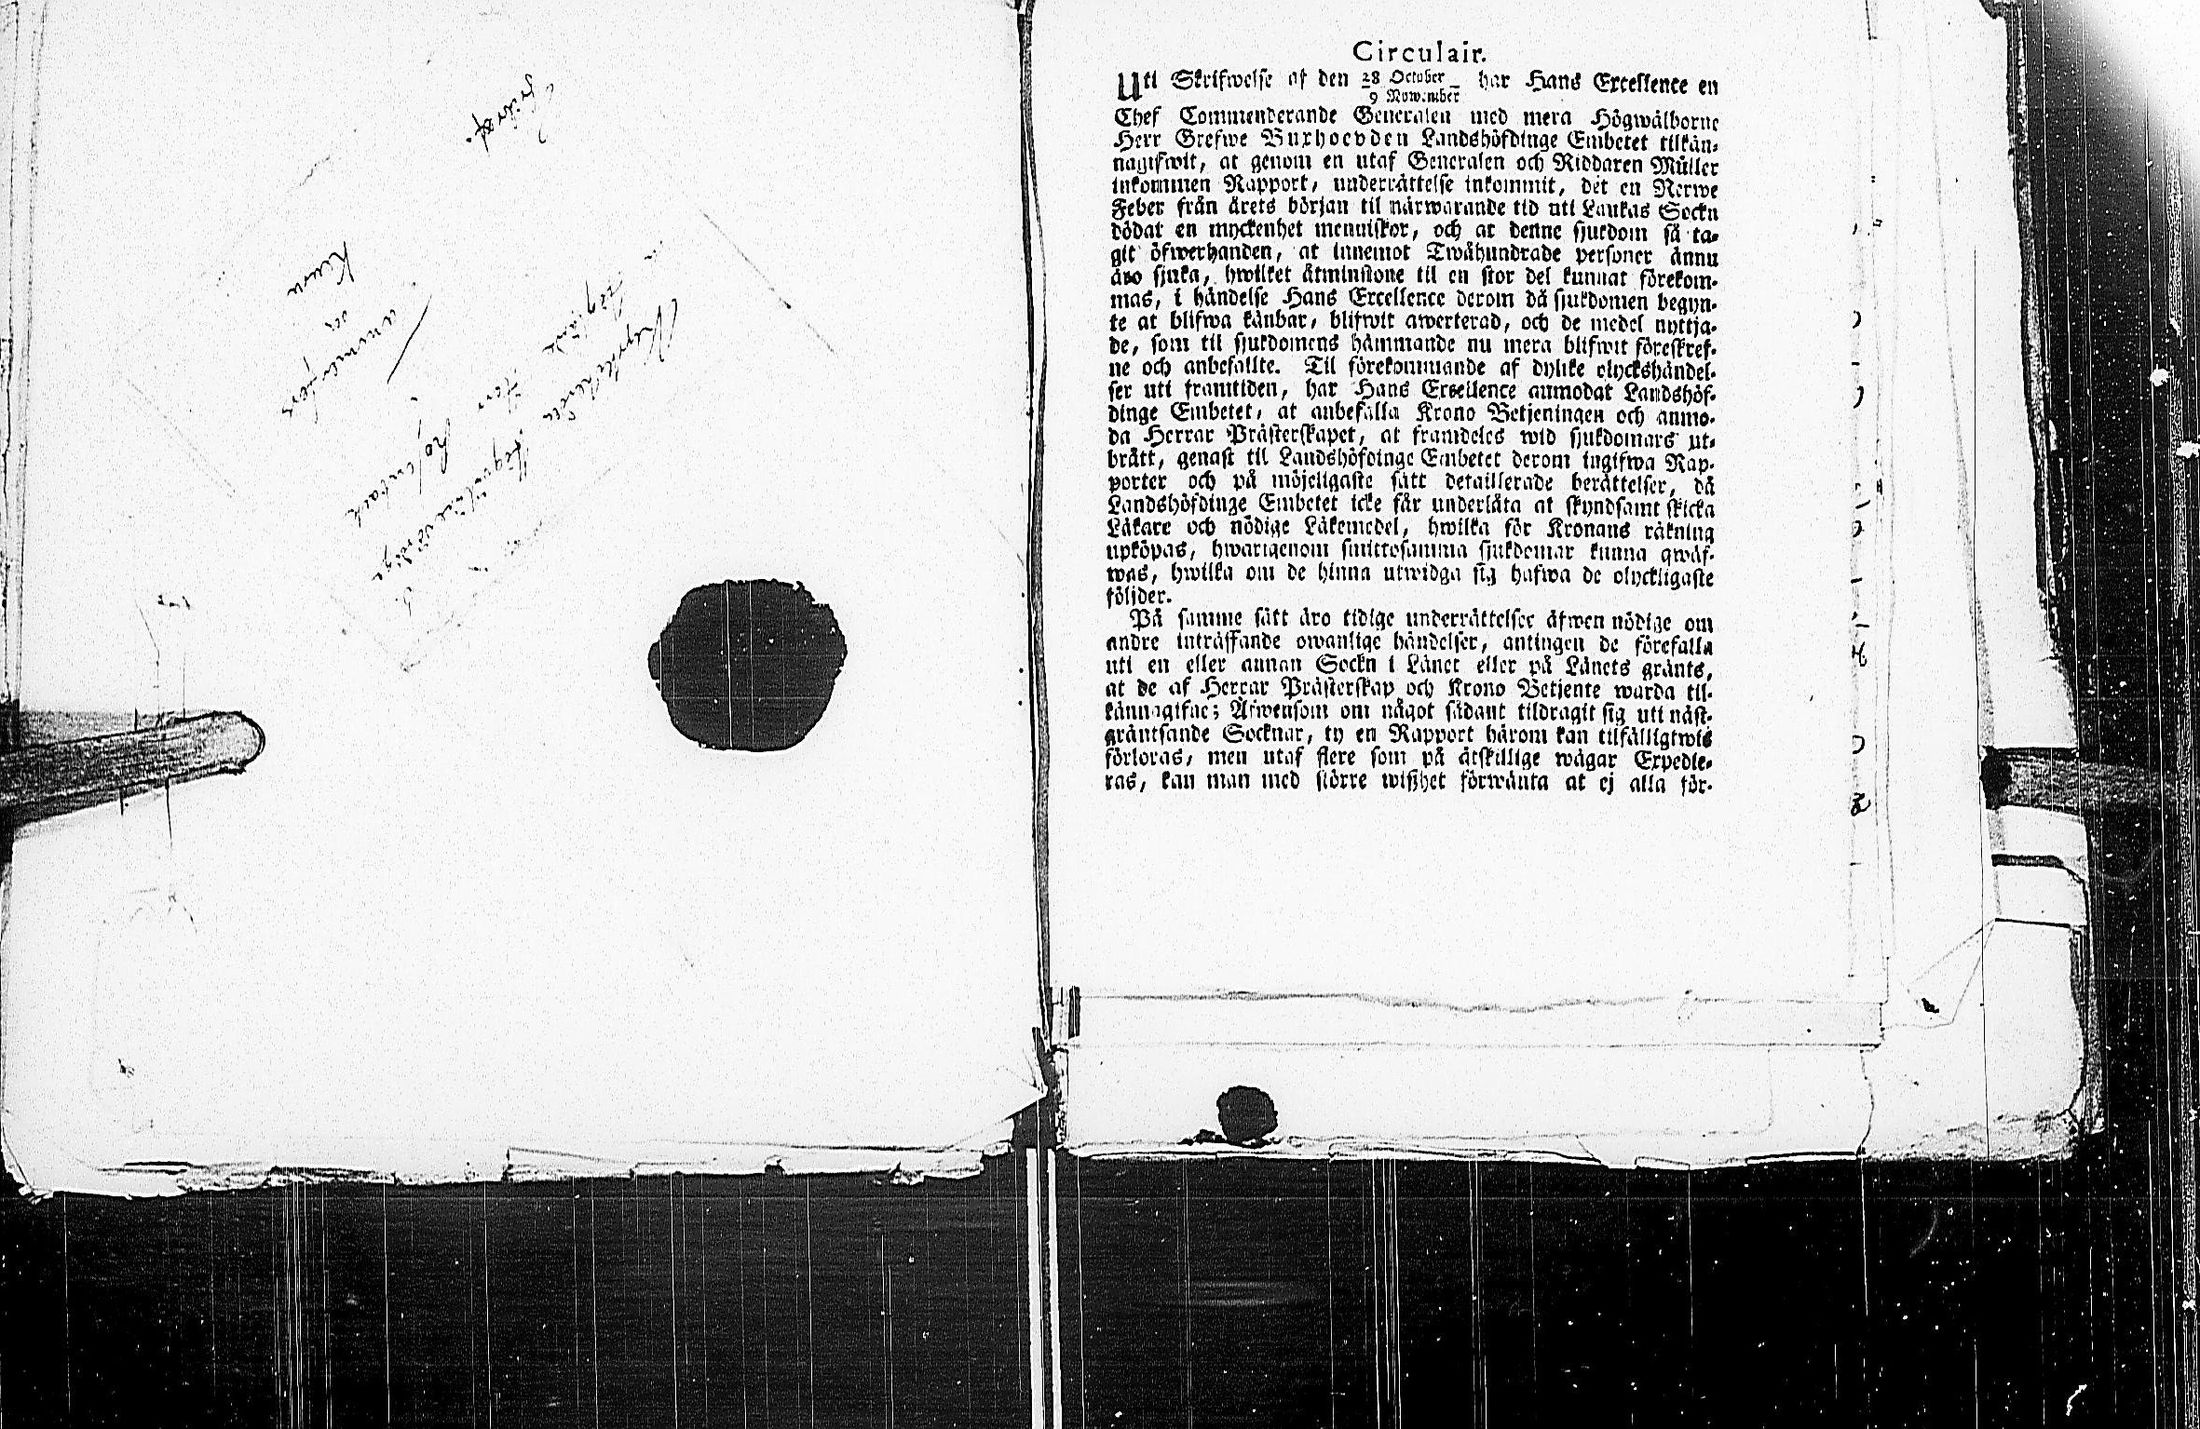 Circulair.
Uti Skrifwelse af den 28 October / 9 Nowember har Hans Excellence en
Chef Commenderande Generalen med mera Högwälborne
Herr Grefwe Buxhoevden Landshöfdinge Embetet tilkän-
nagifwit, at genom en utaf Generalen och Riddaren Müller
inkommen Rapport, underrättelse inkommit, det en Nerwe
Feber från årets början til närwarande tid uti Laukas Sockn
dödat en myckenhet menniskor, och at denne sjukdom så ta-
git öfwerhanden, at innemot Twåhundrade personer ännu
äro sjuka, hwilket åtminstone til en stor del kunnat förekom-
mas, i händelse Hans Excellence derom då sjukdomen begyn-
te at blifwa känbar, blifwit awerterad, och de medel nyttja-
de, som til sjukdomens hämmande nu mera blifwit föreskref-
ne och anbefallte. Til förekommande af dylike olyckshändel-
ser uti framtiden, har Hans Excellence anmodat Landshöf-
dinge Embetet, at anbefalla Krono Betjeningen och anmo-
da Herrar Prästerskapet, at framdeles wid sjukdomars ut-
brått, genast til Landshöfdinge Embetet derom ingifwa Rap-
porter och på möjeligaste sätt detaillerade berättelser, då
Landshöfdinge Embetet icke får underlåta at skyndsamt skicka
Läkare och nödige Läkemedel, hwilka för Kronans räkning
upköpas, hwarigenom smittosamma sjukdomar kunna qwäf-
was, hwilka om de hinna utwidga sig hafwa de olyckligaste
följder.
På samme sätt äro tidige underrättelser äfwen nödige om
andre inträffande owanlige händelser, antingen de förefalla
uti en eller annan Sockn i Länet eller på Länets gränts,
at de af Herrar Prästerskap och Krono Betjente warda til-
kännagifne; Äfwensom om något sådant tildragit sig uti näst-
gräntsande Socknar, ty en Rapport härom kan tilfälligtwis
förloras, men utaf flere som på åtskillige wägar Expedie-
ras, kan man med större wisshet förwänta at ej alla för-